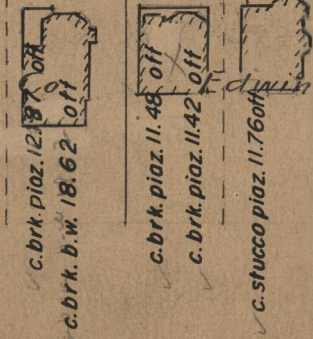 c. brk. piaz. 12.87 off
c. brk. b.w. 18.62 off
c. brk. piaz. 11.48 off
c. brk. piaz. 11.42 off
c. stucco piaz. 11.76 off
Edwin